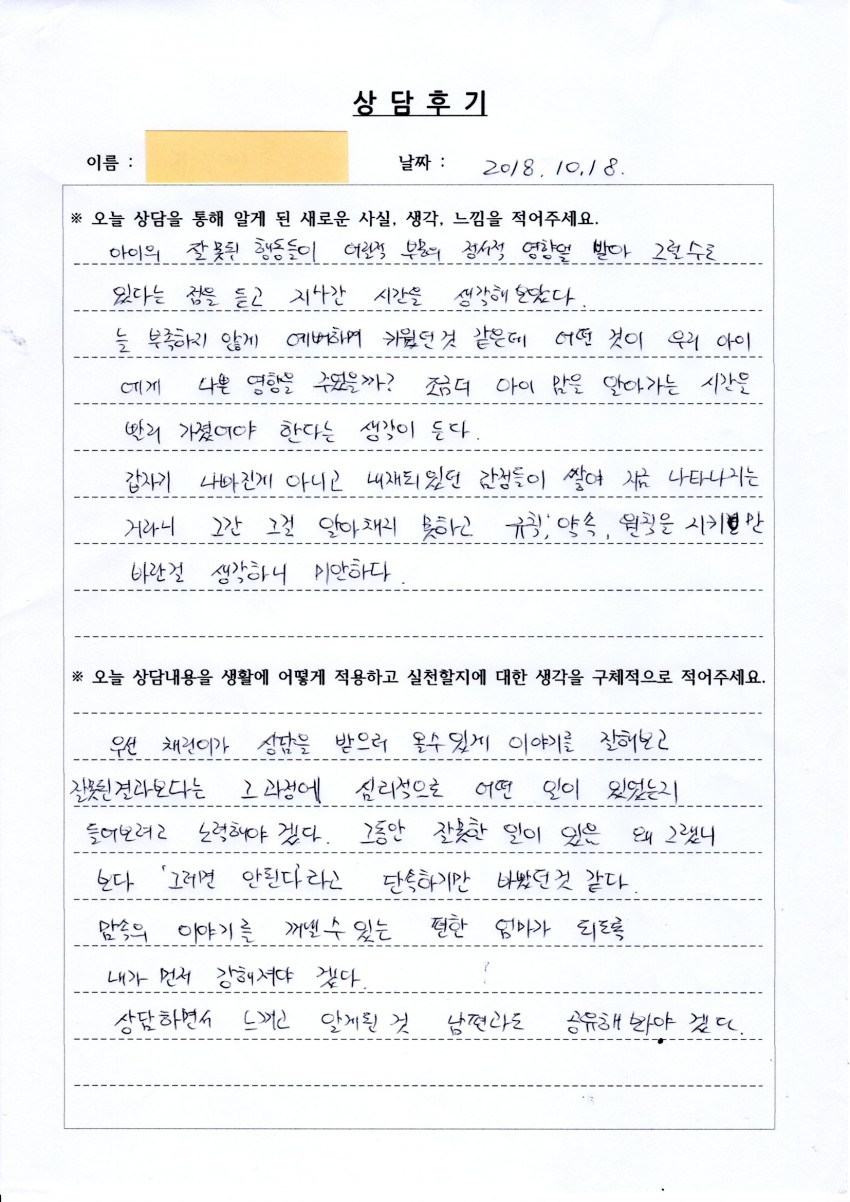 상 담 후 기
이름 : 날짜 : 2018. 10. 18.
※ 오늘 상담을 통해 알게 된 새로운 사실, 생각, 느낌을 적어주세요.
아이의 잘못된 행동들이 어린적 부모의 정서적 영향을 받아 그럴수도
있다는 점을 듣고 지나간 시간을 생각해 보았다.
늘 부족하지 않게 예뻐하며 키웠던 것 같은데 어떤 것이 우리 아이
에게 나쁜 영향을 주었을까? 조금더 아이 맘을 알아가는 시간을
빨리 가졌어야 한다는 생각이 든다.
갑자기 나빠진게 아니고 내재되있던 감정들이 쌓여 지금 나타나지는
거라니 그간 그걸 알아채지 못하고 규칙, 약속, 원칙을 시키길만
바란걸 생각하니 미안하다.
※ 오늘 상담내용을 생활에 어떻게 적용하고 실천할지에 대한 생각을 구체적으로 적어주세요.
우선 채린이가 상담을 받으러 올수있게 이야기를 잘해보고
잘못된결과보다는 그 과정에 심리적으로 어떤 일이 있었는지
들어보려고 노력해야 겠다. 그동안 잘못한 일이 있은 왜 그랬니
보다 '그러면 안된다'라고 단속하기만 바빴던것 같다.
맘속의 이야기를 꺼낼수 있는 편한 엄마가 되도록
내가 먼저 강해져야 겠다.
상담하면서 느끼고 알게된 것 남편과도 공유해 봐야 겠다.